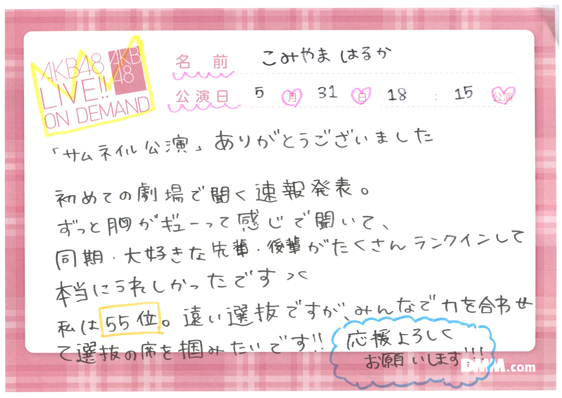 AKB48
LIVE!!
ON DEMAND
AKB
48
名前 こみやま はるか
公演日 5 月 31 日 18 : 15
「サムネイル公演」ありがとうございました
初めての劇場で聞く速報発表。
ずっと胸がギューって感じで聞いて、
同期・大好きな先輩・後輩がたくさんランクインして
本当にうれしかったです
私は55位。遠い選抜ですが、みんなで力を合わせ
て選抜の席を掴みたいです!!
応援よろしく
お願いします!!!
DMM.com